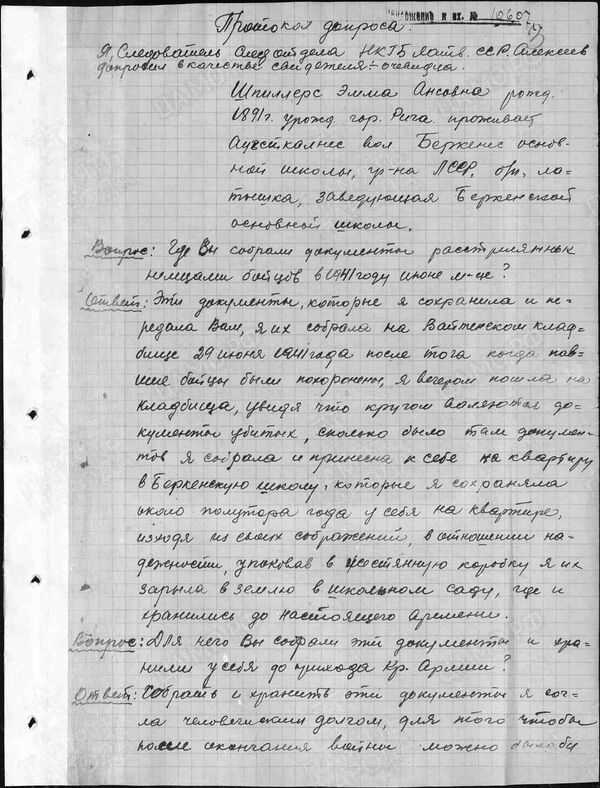 Приложение к вх. № 10607
Протокол допроса.
Я, Следователь Следотдела НКГБ Латв. ССР. Алексеев
допросил в качестве свидетеля-очевидца.
Шпиллерс Эмма Ансовна рожд.
1891г. урожд. гор. Рига. проживает
Аугсткалнес вол Беркенес основ-
ной школы, гр-на ЛССР, б/п, ла-
тышка, заведующая Беркенской
основной школы.
Вопрос: Где Вы собрали документы расстрелянных
немцами бойцов в 1941 году июне м-це?
Ответ: Эти документы, которые я сохранила и пе-
редала Вам, я их собрала на клад-
бище 29 июня 1941 года после того когда пав-
шие бойцы были похоронены, я вечером пошла на
кладбища, увидя что кругом валяются до-
кументы убитых, сколько было там докумен-
тов я собрала и принесла к себе на квартиру
в Беркенскую школу, которые я сохраняла
около полутора года у себя на квартире,
исходя из своих соображений, в отношении на-
дежности, упаковав в жестянную коробку я их
зарыла в землю в школьном саду, где и
хранились до настоящего времени.
Вопрос: Для чего Вы собрали эти документы и хра-
нили у себя до прихода Кр. Армии?
Ответ: Собрать и хранить эти документы я соч-
ла человеческим долгом, для того чтобы
после окончания войны можно было бы